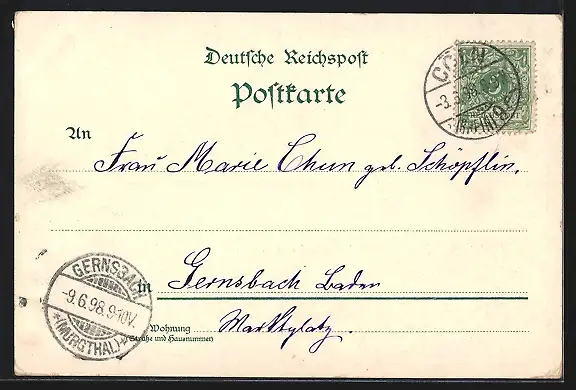 Deutsche Reichspost
Postkarte
CÖLN
An
Frau Marie Chun geb. Schöpflin.
GERNSBACH
-9.6.98.9-10V.
*(MURGTHAL)*
in Gernsbach Baden
Wohnung Marktplatz.
(Straße und Hausnummer)